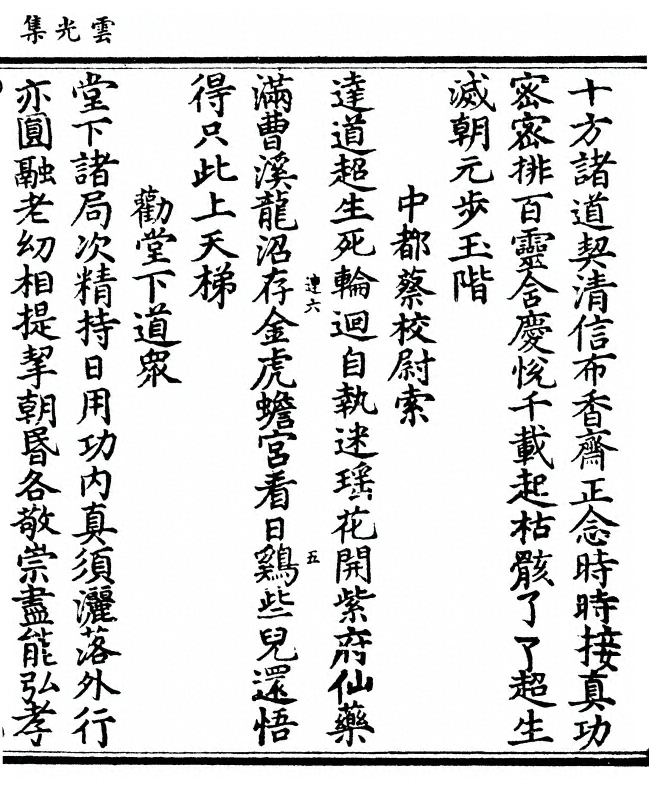 雲光集
十方諸道契清信布香齋正念時時接真功
密密排百靈舍慶悅千載起枯骸了了超生
滅朝元步玉階
中都蔡校尉索
達道超生死輪迴自執迷瑤花開紫府仙藥
滿曹溪龍沼存金虎蟾宮看日鷄些兒還悟
得只此上天梯
勸堂下道衆
堂下諸局次精持日用功內真須灑落外行
亦圓融老幼相提挈朝昏各敬崇盡能弘孝
連六
五